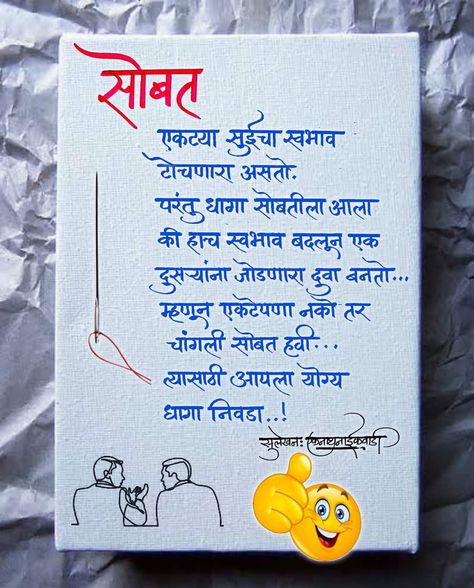 सोबत
एकटया सुईचा स्वभाव
टोचणारा असतो.
परंतु धागा सोबतीला आला
की हाच स्वभाव बदलून एक
दुसऱ्यांना जोडणारा दुवा बनतो...
म्हणून एकटेपणा नको तर
चांगली सोबत हवी...
त्यासाठी आपला योग्य
धागा निवडा..!
सुलेखन: